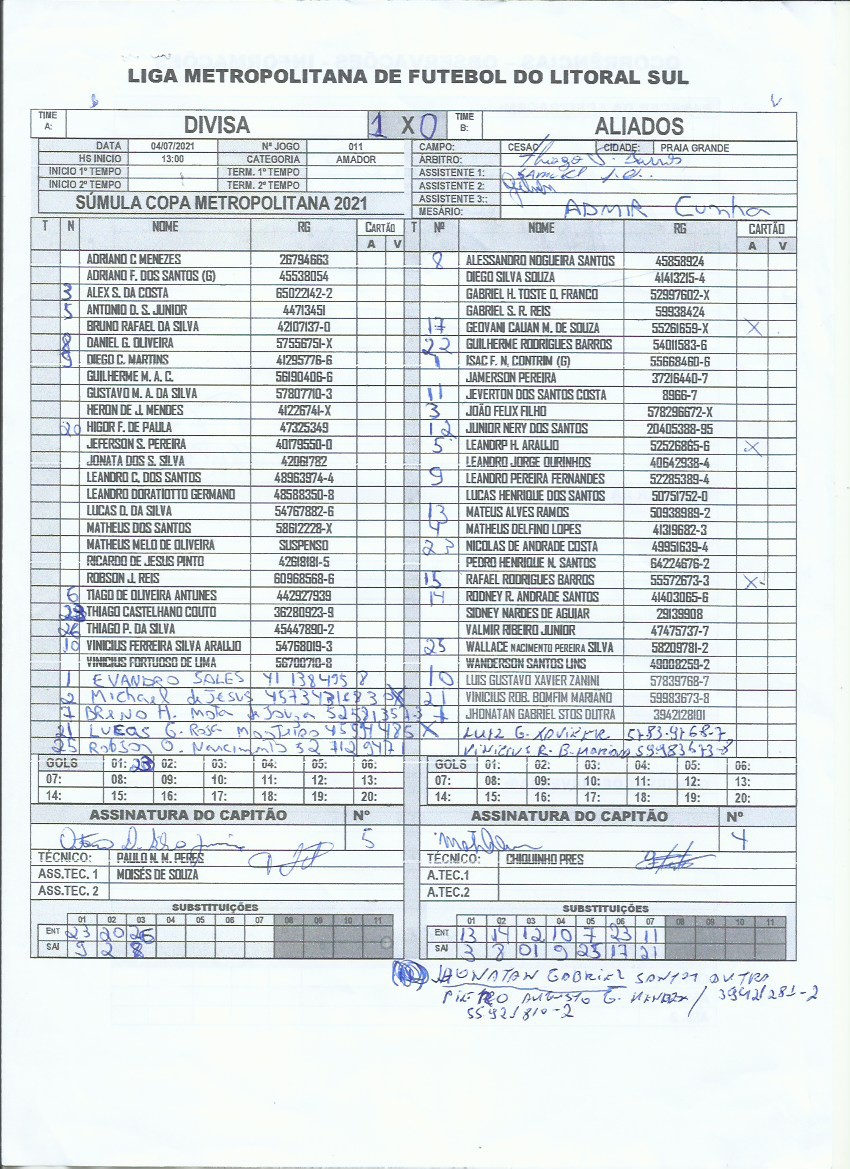 LIGA METROPOLITANA DE FUTEBOL DO LITORAL SUL
TIME A: DIVISA 1 X 0 TIME B: ALIADOS
DATA 04/07/2021 Nº JOGO 011 CAMPO: CESAC CIDADE: PRAIA GRANDE
HS INICIO 13:00 CATEGORIA AMADOR ÁRBITRO: Thiago S. Barros
INICIO 1º TEMPO TERM. 1º TEMPO ASSISTENTE 1:
INICIO 2º TEMPO TERM. 2º TEMPO ASSISTENTE 2:
SÚMULA COPA METROPOLITANA 2021 ASSISTENTE 3::
MESÁRIO: ADMIR Cunha
T N NOME RG CARTÃO T Nº NOME RG CARTÃO
A V A V
ADRIANO C MENEZES 26794663 8 ALESSANDRO NOGUEIRA SANTOS 45858924
ADRIANO F. DOS SANTOS (G) 45538054 DIEGO SILVA SOUZA 41413215-4
3 ALEX S. DA COSTA 65022142-2 GABRIEL H. TOSTE O. FRANCO 52997602-X
5 ANTONIO D. S. JUNIOR 44713451 GABRIEL S. R. REIS 59938424
BRUNO RAFAEL DA SILVA 42107137-0 17 GEOVANI CAUAN M. DE SOUZA 55261659-X X
8 DANIEL G. OLIVEIRA 5755675I-X 22 GUILHERME RODRIGUES BARROS 54011583-6
9 DIEGO C. MARTINS 41295776-6 1 ISAC F. N, CONTRIM (G) 55668460-6
GUILHERME M. A. C. 56190406-6 JAMERSON PEREIRA 37216440-7
GUSTAVO M. A. DA SILVA 57807710-3 11 JEVERTON DOS SANTOS COSTA 8966-7
HERON DE J. MENDES 41226741-X 3 JOÃO FELIX FILHO 578296672-X
20 HIGOR F. DE PAULA 47325349 12 JUNIOR NERY DOS SANTOS 20405388-95
JEFERSON S. PEREIRA 40179550-0 5 LEANDRP H. ARAUJO 52526865-6 X
JONATA DOS S. SILVA 42061782 LEANDRO JORGE OURINHOS 40642938-4
LEANDRO C. DOS SANTOS 48963974-4 9 LEANDRO PEREIRA FERNANDES 52285389-4
LEANDRO DORATIOTTO GERMANO 48588350-8 LUCAS HENRIQUE DOS SANTOS 50751752-0
LUCAS D. DA SILVA 54767882-6 13 MATEUS ALVES RAMOS 50938989-2
MATHEUS DOS SANTOS 58612228-X 4 MATHEUS DELFINO LOPES 41319682-3
MATHEUS MELO DE OLIVEIRA SUSPENSO 23 NICOLAS DE ANDRADE COSTA 49951639-4
RICARDO DE JESUS PINTO 42618181-5 PEDRO HENRIQUE N. SANTOS 64224676-2
ROBSON J. REIS 60968568-6 15 RAFAEL RODRIGUES BARROS 55572673-3 X
6 TIAGO DE OLIVEIRA ANTUNES 442927939 14 RODNEY R. ANDRADE SANTOS 41403065-6
23 THIAGO CASTELHANO COUTO 36280923-9 SIDNEY NARDES DE AGUIAR 29139908
26 THIAGO P. DA SILVA 45447890-2 VALMIR RIBEIRO JUNIOR 47475737-7
10 VINICIUS FERREIRA SILVA ARAUJO 54768019-3 25 WALLACE NACIMENTO PEREIRA SILVA 58209781-2
VINICIUS FORTUOSO DE LIMA 56700710-8 WANDERSON SANTOS LINS 49008259-2
1 EVANDRO SALES 41 138495 8 10 LUIS GUSTAVO XAVIER ZANINI 57839768-7
2 Michael de Jesus X 21 VINICIUS ROB. BOMFIM MARIANO 59983673-8
7 BRENO H. Mota de Souza 7 JHONATAN GABRIEL STOS DUTRA 3942128101
21 LUCAS G. Rosa Monteiro X LUIZ G. XAVIER 5783.9768-7
25 Robson O. Nascimento VINICIUS R. B. Mariano 59983673-8
GOLS 01: 23 02: 03: 04: 05: 06: GOLS 01: 02: 03: 04: 05: 06:
07: 08: 09: 10: 11: 12: 13: 07: 08: 09: 10: 11: 12: 13:
14: 15: 16: 17: 18: 19: 20: 14: 15: 16: 17: 18: 19: 20:
ASSINATURA DO CAPITÃO Nº ASSINATURA DO CAPITÃO Nº
5 4
TÉCNICO: PAULO N. M. PERES TÉCNICO: CHIQUINHO PRES
ASS.TEC. 1 MOISÉS DE SOUZA A.TEC.1
ASS.TEC. 2 A.TEC.2
SUBSTITUIÇÕES SUBSTITUIÇÕES
01 02 03 04 05 06 07 08 09 10 11 01 02 03 04 05 06 07 08 09 10 11
ENT 23 20 26 ENT 13 14 12 10 7 23 11
SAI 9 2 8 SAI 3 8 01 9 25 17 21
JHONATAN GABRIEL SANTOS DUTRA
PIETRO AUGUSTO G. / 39421281-2
55921810-2